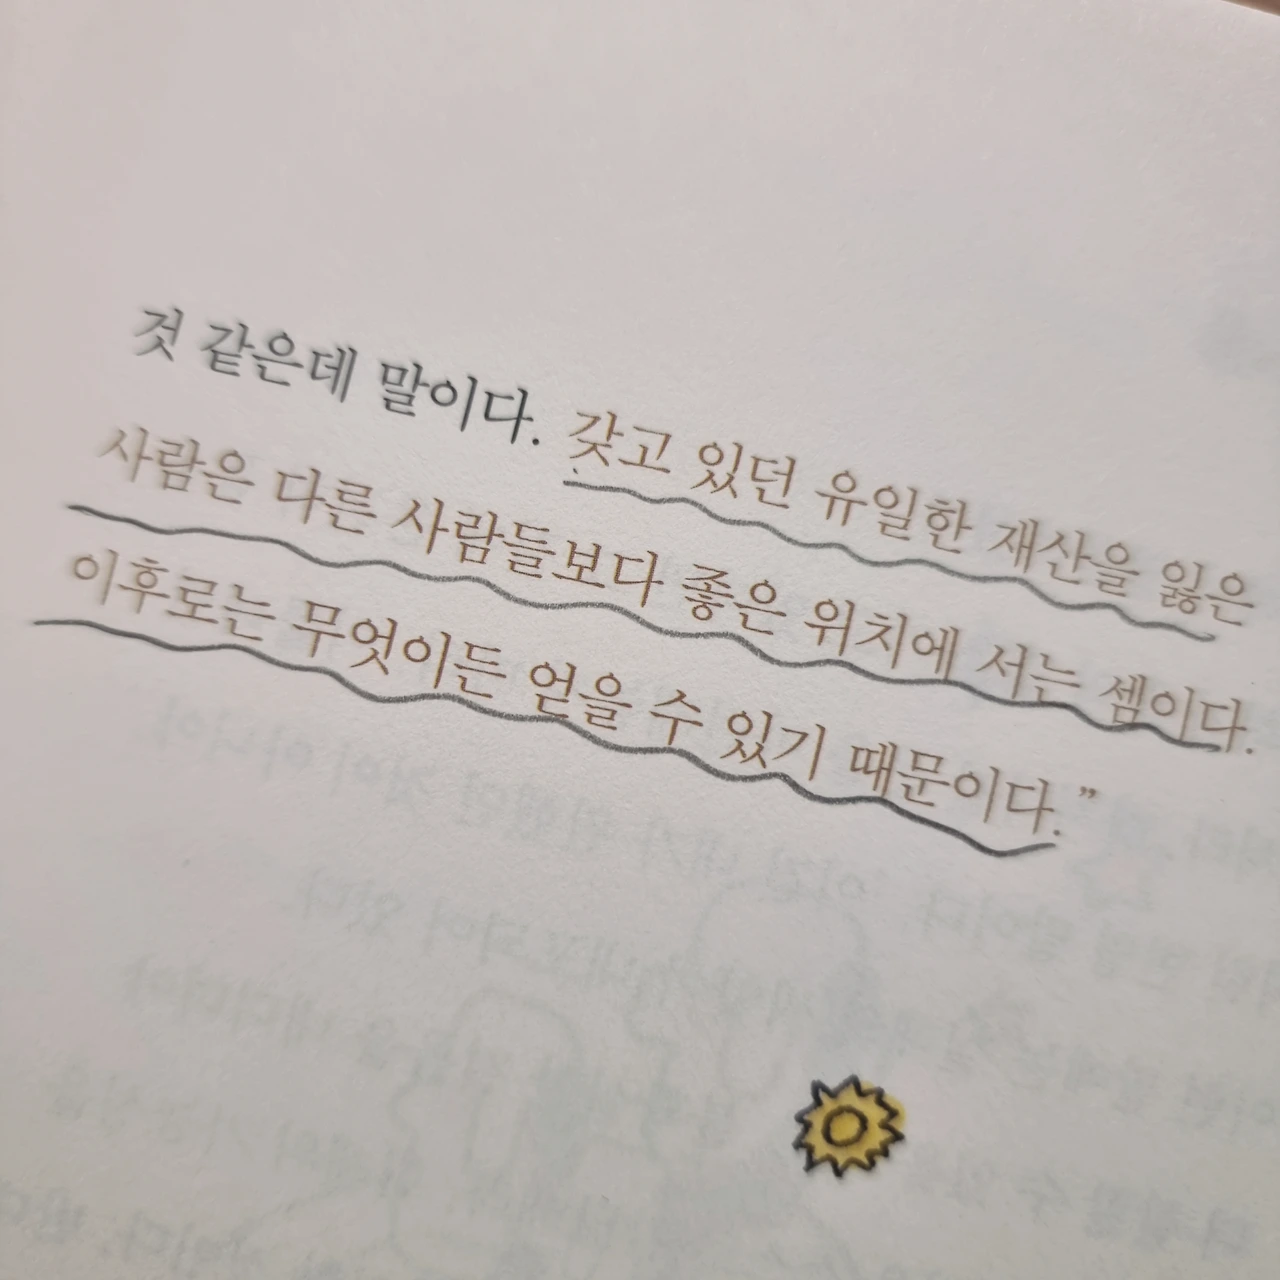 것 같은데 말이다. 갖고 있던 유일한 재산을 잃은
사람은 다른 사람들보다 좋은 위치에 서는 셈이다.
이후로는 무엇이든 얻을 수 있기 때문이다.”